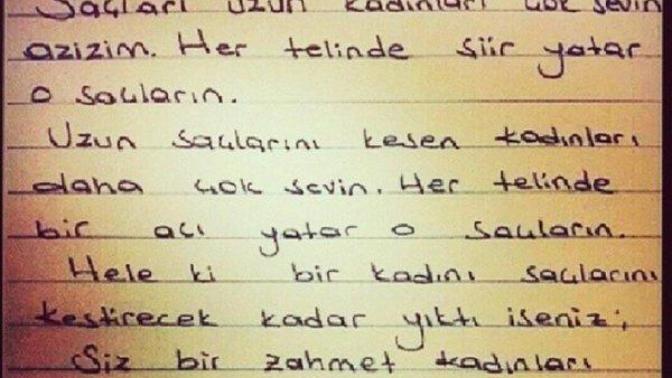 Saçları uzun kadınları çok sevin
azizim. Her telinde şiir yatar
o saçların.
Uzun saçlarını kesen kadınları
daha çok sevin. Her telinde
bir acı yatar o saçların.
Hele ki bir kadını saçlarını
kestirecek kadar yıktı iseniz;
Siz bir zahmet kadınları